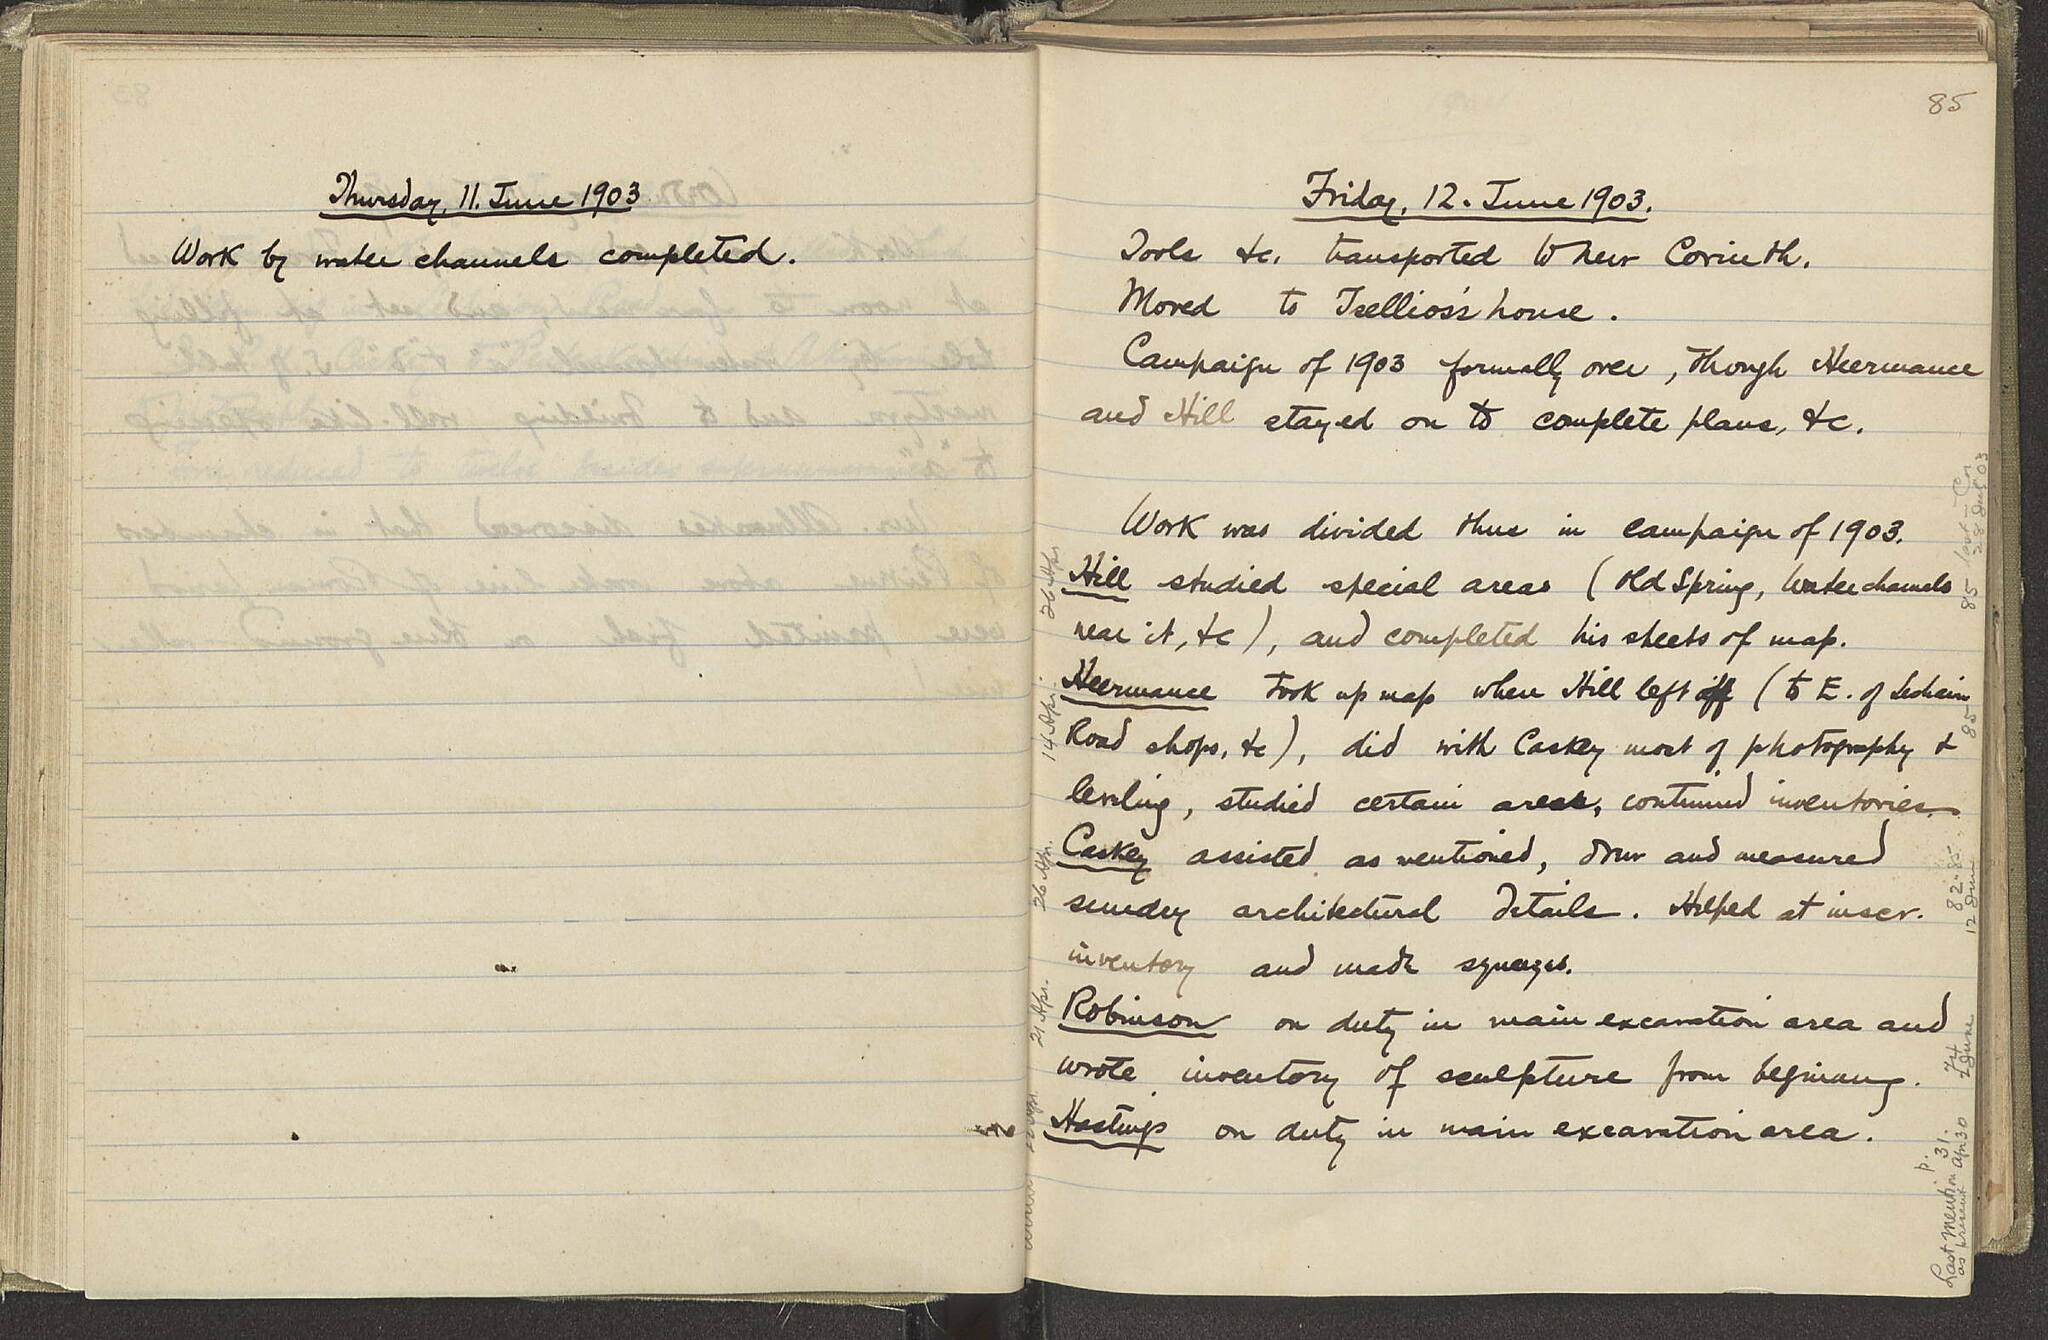 Thursday, 11. June 1903
Work by water channels completed.
85
Friday, 12. June 1903.
Tools &c. transported to New Corinth.
Moved to Tsellios's house.
Campaign of 1903 formally over, though Heermance
and Hill stayed on to complete plans, &c.
Work was divided thus in campaign of 1903.
Hill studied special areas (Old Spring, Water channels
near it, &c), and completed his sheets of map.
Heermance took up map where Hill left off (to E. of Lechaion
Road shops, &c), did with Caskey most of photography &
leveling, studied certain areas, continued inventories.
Caskey assisted as mentioned, drew and measured
sundry architectural details. Helped at inscr.
inventory and made squeezes.
Robinson on duty in main excavation area and
wrote inventory of sculpture from beginning.
Hastings on duty in main excavation area.
26 Apr.
14 Apr.
26 Apr.
21 Apr.
85
28 Jul 03
85
82-85
12 June
74
2 June
p. 31.
Last mention Apr 30
as present